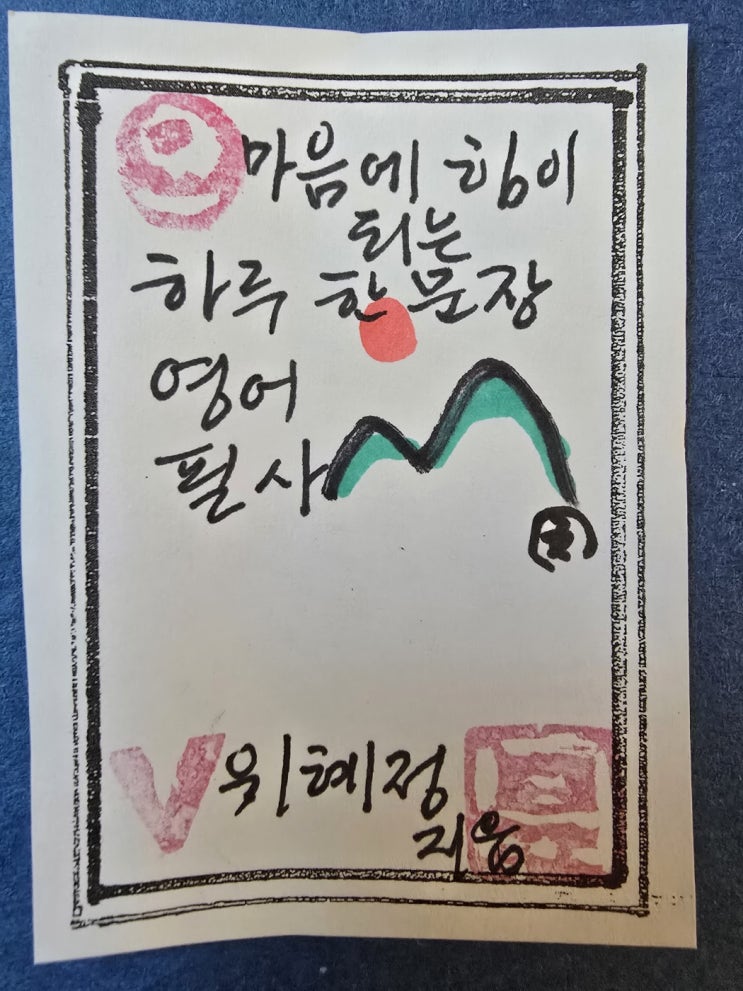 마음에 힘이
되는
하루 한 문장
영어
필사
위혜정
지음